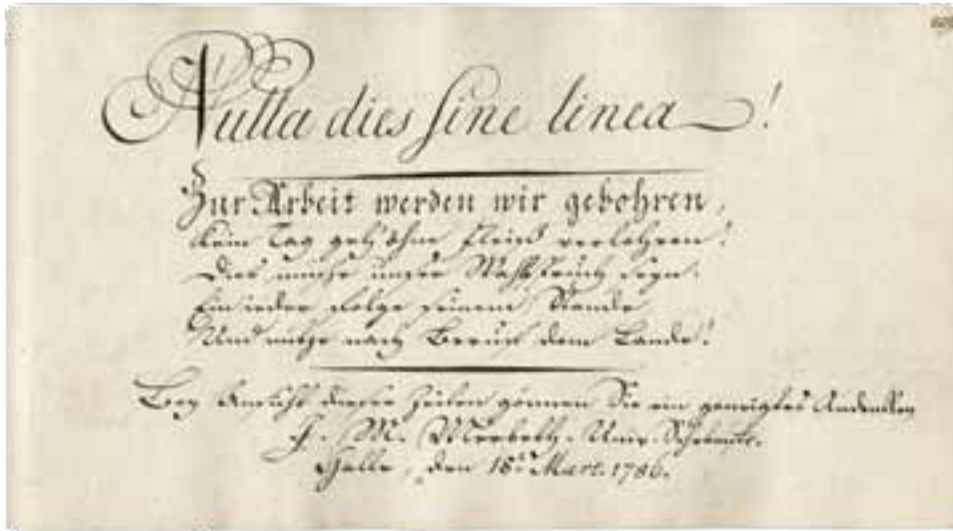 Nulla dies sine linea!
Zur Arbeit werden wir gebohren,
Kein Tag geh' ohne Fleiß verlohren!
Dies müsse unser Wahlspruch seyn.
Ein jeder folge seinem Stande
Und nütze nach Beruf dem Lande!
Bey Ansicht dieser Zeilen gönnen Sie ein geneigtes Andenken
J. M. Univ.
Halle, den 18t Mart. 1786.